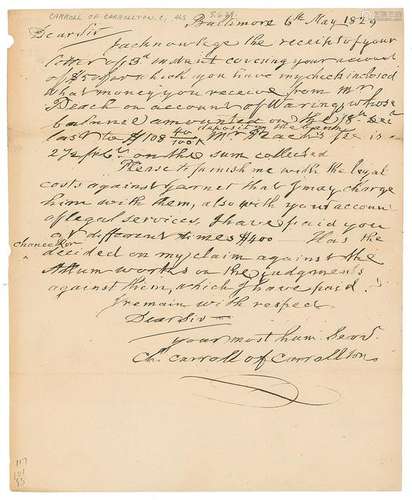 CARROLL OF CARROLLTON, C, ALS
Baltimore 6th May 1829
Dear Sir
I acknowledge the receipt of your
letter of 3d instant covering your account
of $50 for which you have my check inclosed
what money you receive from Mr
Beach on account of Waring, whose
balance amounted on the 18th Decr
last to $108 40/100 deposit in the bank
Mr Beach's fee is
2½ pr Ct on the sum collected
Please to furnish me with the legal
costs against Garnet that I may charge
him with them, also with your account
of legal services, I have paid you
at different times $400 Has the
Chancellor
decided on my claim against the
worths on the judgments
against them, which I have paid
I remain with respect
Dear Sir
Your most hum. Servt.
Ch. Carroll of Carrollton